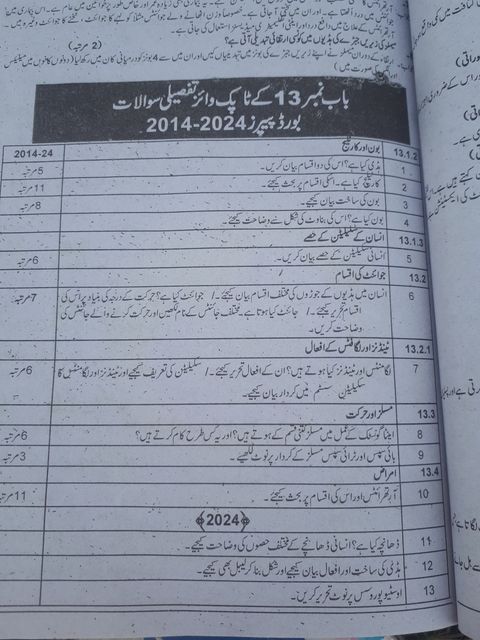 میملز کی زیریں جبڑے کی ہڈیوں میں کونسی ارتقائی تبدیلی آئی ہے؟ (2 مرتبہ)
باب نمبر 13 کے ٹاپک وائز تفصیلی سوالات
بورڈ پیپرز 2024-2014
13.1.2 بون اور کارٹلیج 2014-24
1 ہڈی کیا ہے؟ اس کی دو اقسام بیان کریں۔ 5 مرتبہ
2 کارٹلیج کیا ہے۔ اسکی اقسام پر بحث کیجئے۔ 11 مرتبہ
3 بون کی ساخت بیان کیجیے۔ 8 مرتبہ
4 بون کیا ہے؟ اس کی بناوٹ کی شکل سے وضاحت کیجئے۔
13.1.3 انسان کے سکیلیٹن کے حصے
5 انسانی سکیلیٹن کے حصے بیان کریں۔ 6 مرتبہ
13.2 جوائنٹ کی اقسام
6 انسان میں ہڈیوں کے جوڑوں کی مختلف اقسام بیان کیجئے۔ / جوائنٹ کیا ہے؟ حرکت کے درجہ کی بنیاد پر اس کی 7 مرتبہ
اقسام تحریر کیجئے۔ / جائنٹ کیا ہوتا ہے۔ مختلف جائنٹس کے نام لکھیں اور حرکت کرنے والے جائنٹس کی
وضاحت کریں۔
13.2.1 ٹینڈنز اور لگامنٹس کے افعال
7 لگامنٹس اور ٹینڈنز کیا ہوتے ہیں؟ ان کے افعال تحریر کیجئے۔ / سکیلیٹن کی تعریف کیجیے اور ٹینڈنز اور لگامنٹس کا 6 مرتبہ
سکیلیٹن سسٹم میں کردار بیان کیجیے۔
13.3 مسلز اور حرکت
8 اینٹا گونسٹک کے عمل میں مسلز کتنی قسم کے ہوتے ہیں؟ اور یہ کس طرح کام کرتے ہیں؟ 6 مرتبہ
9 بائی سپس اور ٹرائی سپس مسلز کے کردار پر نوٹ لکھیے۔ 3 مرتبہ
13.4 امراض
10 آرتھرائٹس اور اس کی اقسام پر بحث کیجئے۔ 11 مرتبہ
﴿2024﴾
11 ڈھانچہ کیا ہے؟ انسانی ڈھانچے کے مختلف حصوں کی وضاحت کیجیے۔
12 ہڈی کی ساخت اور افعال بیان کیجیے اور شکل بنا کر لیبل بھی کیجیے۔
13 اوسٹیوپوروسس پر نوٹ تحریر کریں۔